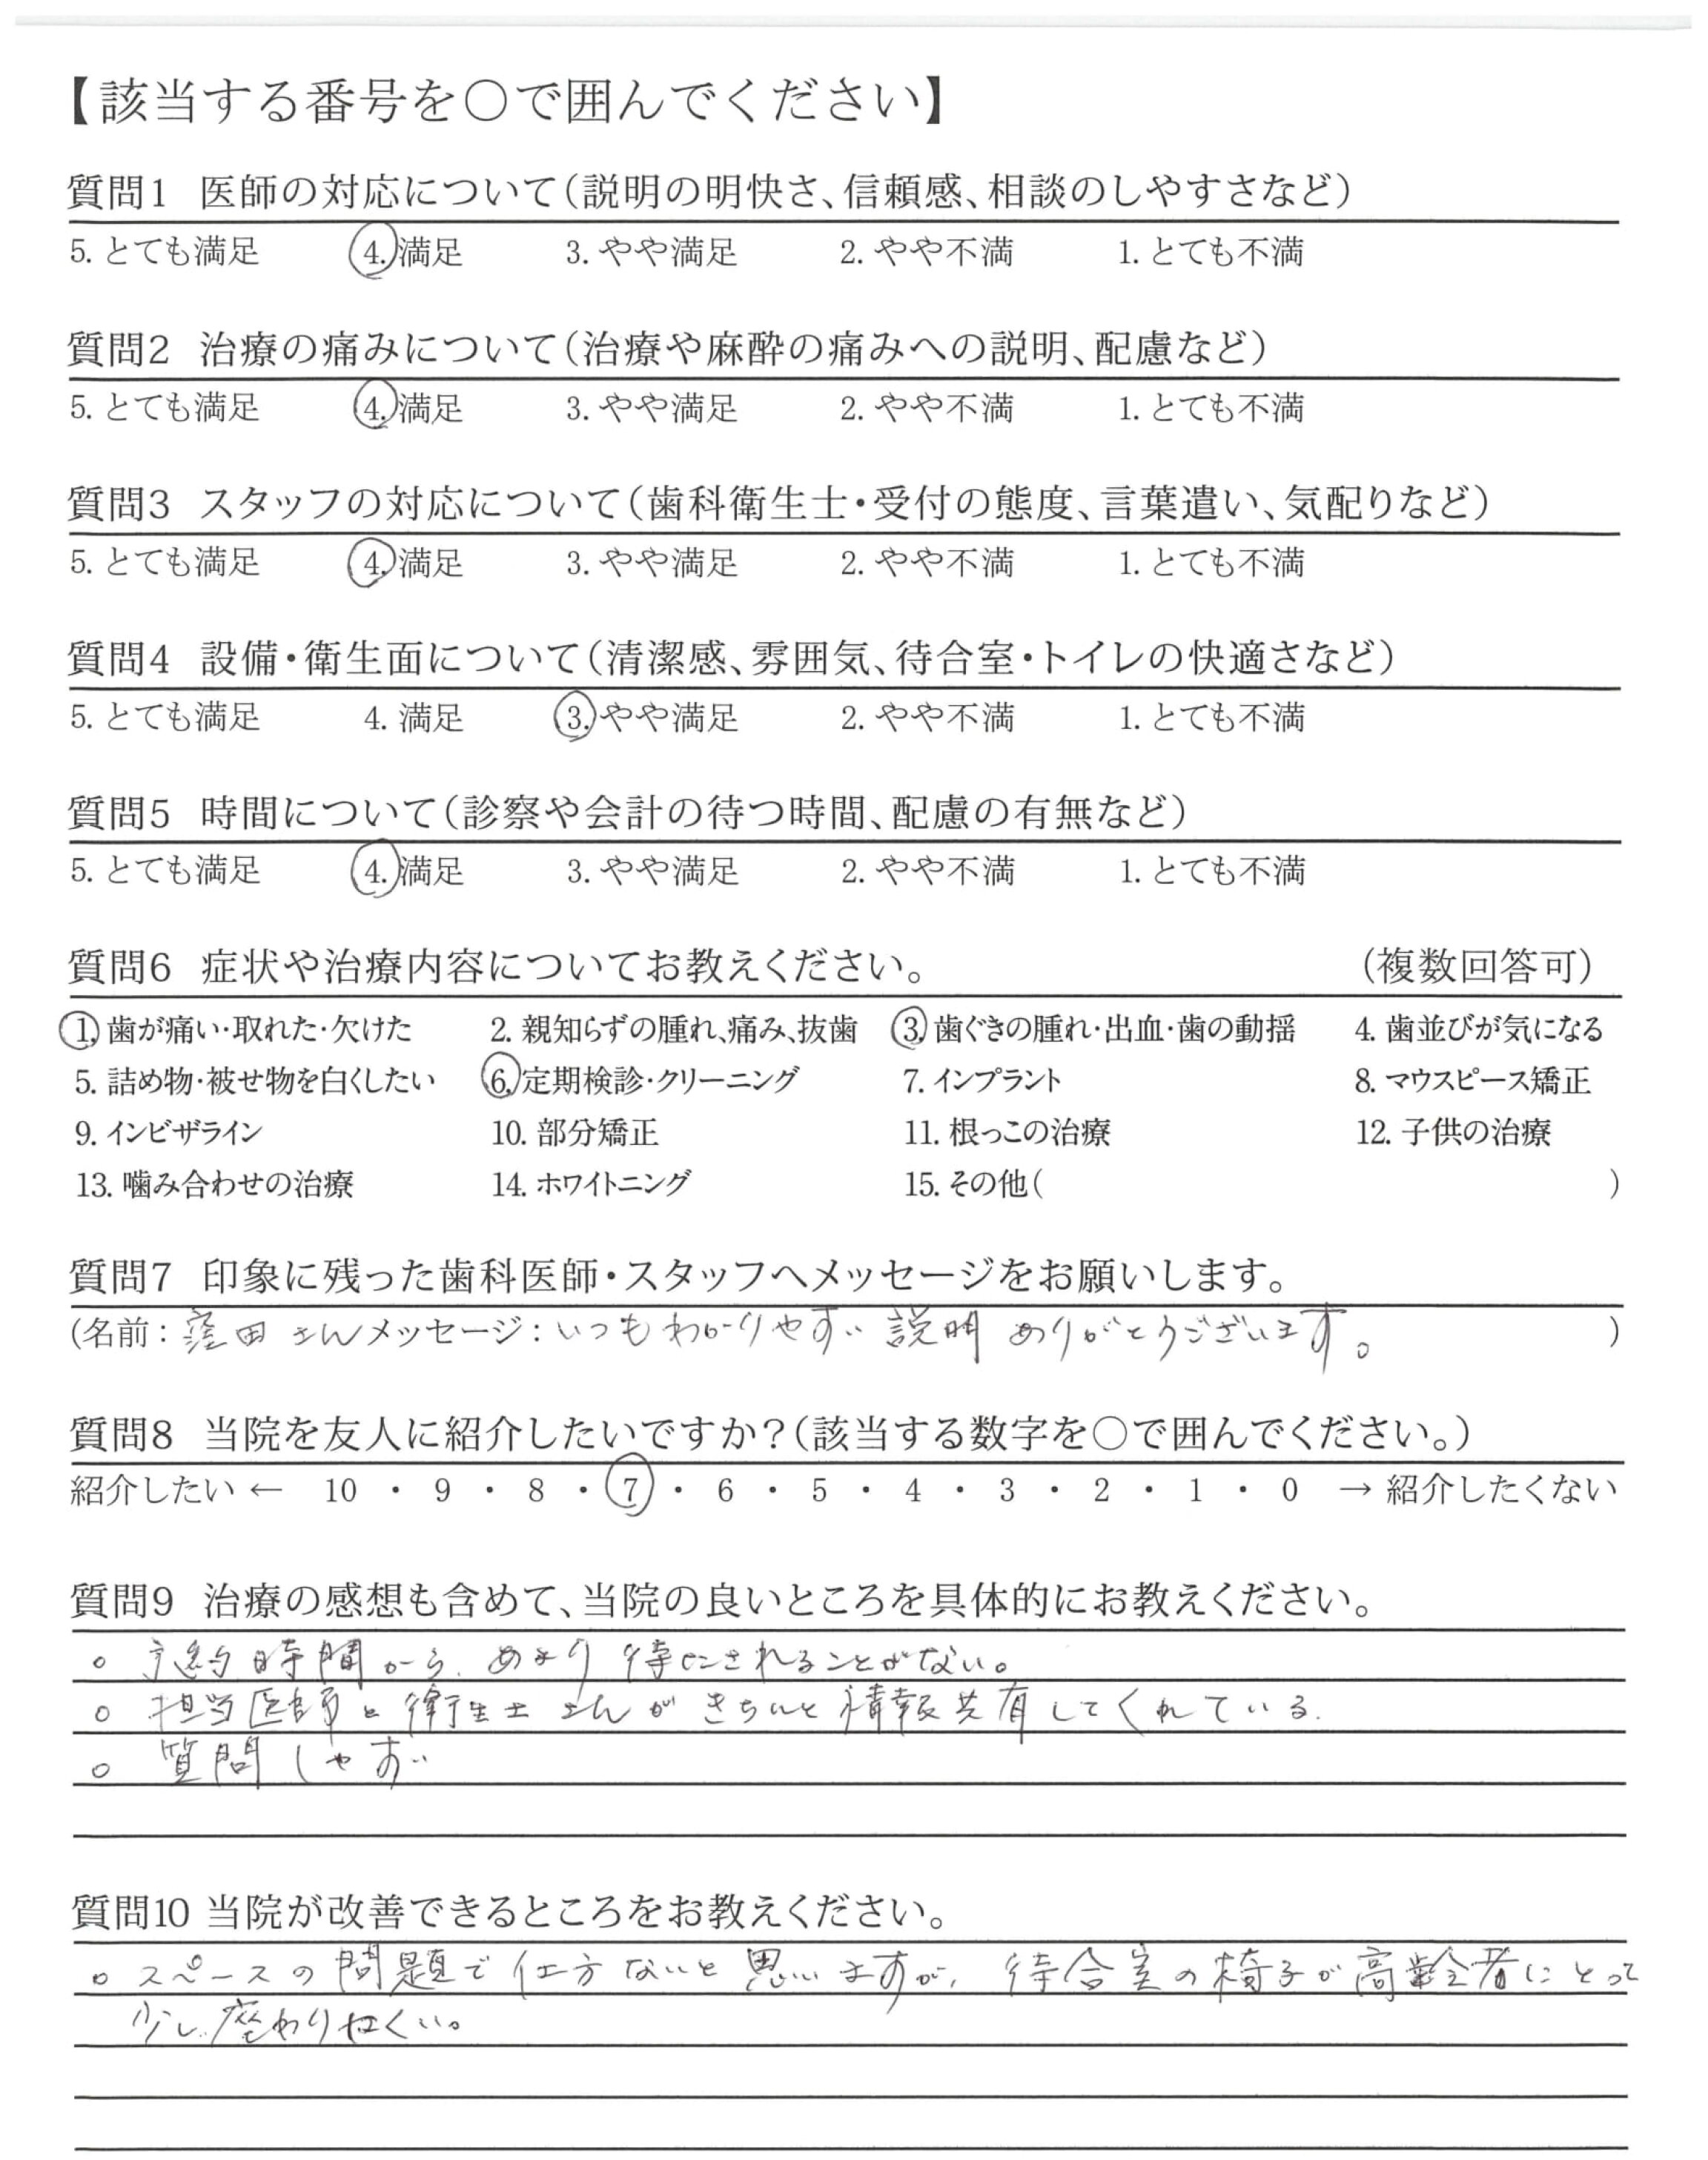 【該当する番号を○で囲んでください】
質問1 医師の対応について(説明の明快さ、信頼感、相談のしやすさなど)
5. とても満足 4. 満足 3. やや満足 2. やや不満 1. とても不満
質問2 治療の痛みについて(治療や麻酔の痛みへの説明、配慮など)
5. とても満足 4. 満足 3. やや満足 2. やや不満 1. とても不満
質問3 スタッフの対応について(歯科衛生士・受付の態度、言葉遣い、気配りなど)
5. とても満足 4. 満足 3. やや満足 2. やや不満 1. とても不満
質問4 設備・衛生面について(清潔感、雰囲気、待合室・トイレの快適さなど)
5. とても満足 4. 満足 3. やや満足 2. やや不満 1. とても不満
質問5 時間について(診察や会計の待つ時間、配慮の有無など)
5. とても満足 4. 満足 3. やや満足 2. やや不満 1. とても不満
質問6 症状や治療内容についてお教えください。 (複数回答可)
1. 歯が痛い・取れた・欠けた 2. 親知らずの腫れ、痛み、抜歯 3. 歯ぐきの腫れ・出血・歯の動揺 4. 歯並びが気になる
5. 詰め物・被せ物を白くしたい 6. 定期検診・クリーニング 7. インプラント 8. マウスピース矯正
9. インビザライン 10. 部分矯正 11. 根っこの治療 12. 子供の治療
13. 噛み合わせの治療 14. ホワイトニング 15. その他( )
質問7 印象に残った歯科医師・スタッフへメッセージをお願いします。
(名前：窪田 さんメッセージ：いつもわかりやすい説明ありがとうございます。 )
質問8 当院を友人に紹介したいですか？(該当する数字を○で囲んでください。)
紹介したい ← 10 ・ 9 ・ 8 ・ 7 ・ 6 ・ 5 ・ 4 ・ 3 ・ 2 ・ 1 ・ 0 → 紹介したくない
質問9 治療の感想も含めて、当院の良いところを具体的にお教えください。
○ 予約時間から、あまり待たされることがない。
○ 担当医師と衛生士さんがきちんと情報共有してくれている。
○ 質問しやすい
質問10 当院が改善できるところをお教えください。
○ スペースの問題で仕方ないと思いますが、待合室の椅子が高齢者にとって
少し座わりにくい。